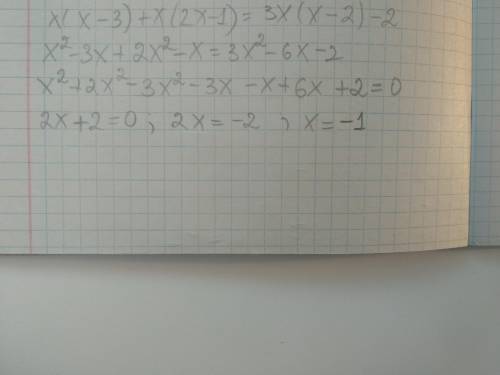 x(x-3)+x(2x-1)=3x(x-2)-2
x²-3x+2x²-x=3x²-6x-2
x²+2x²-3x²-3x-x+6x+2=0
2x+2=0; 2x=-2; x=-1